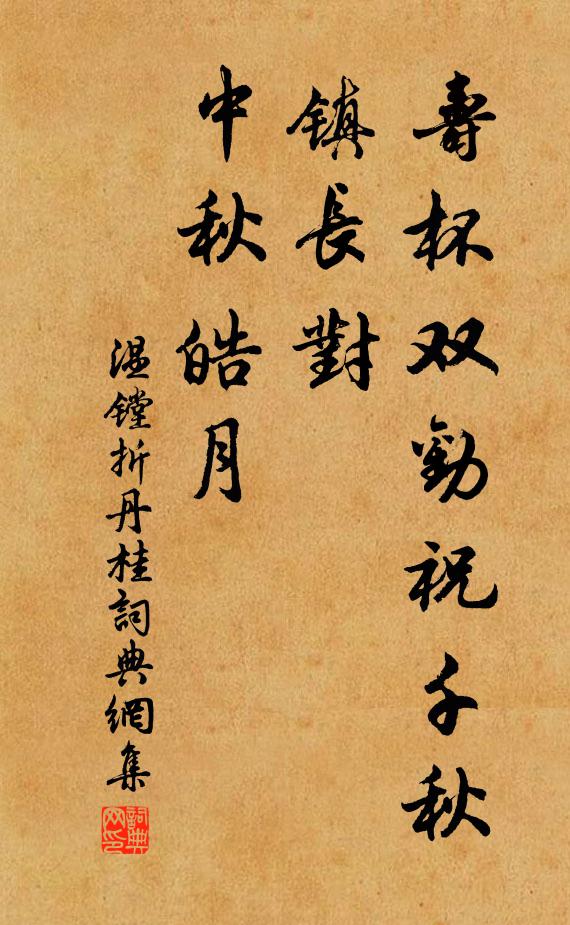 壽杯双勸祝千秋
鎮長對
中秋皓月
温鏜折丹桂詞典網集
詞典
网印